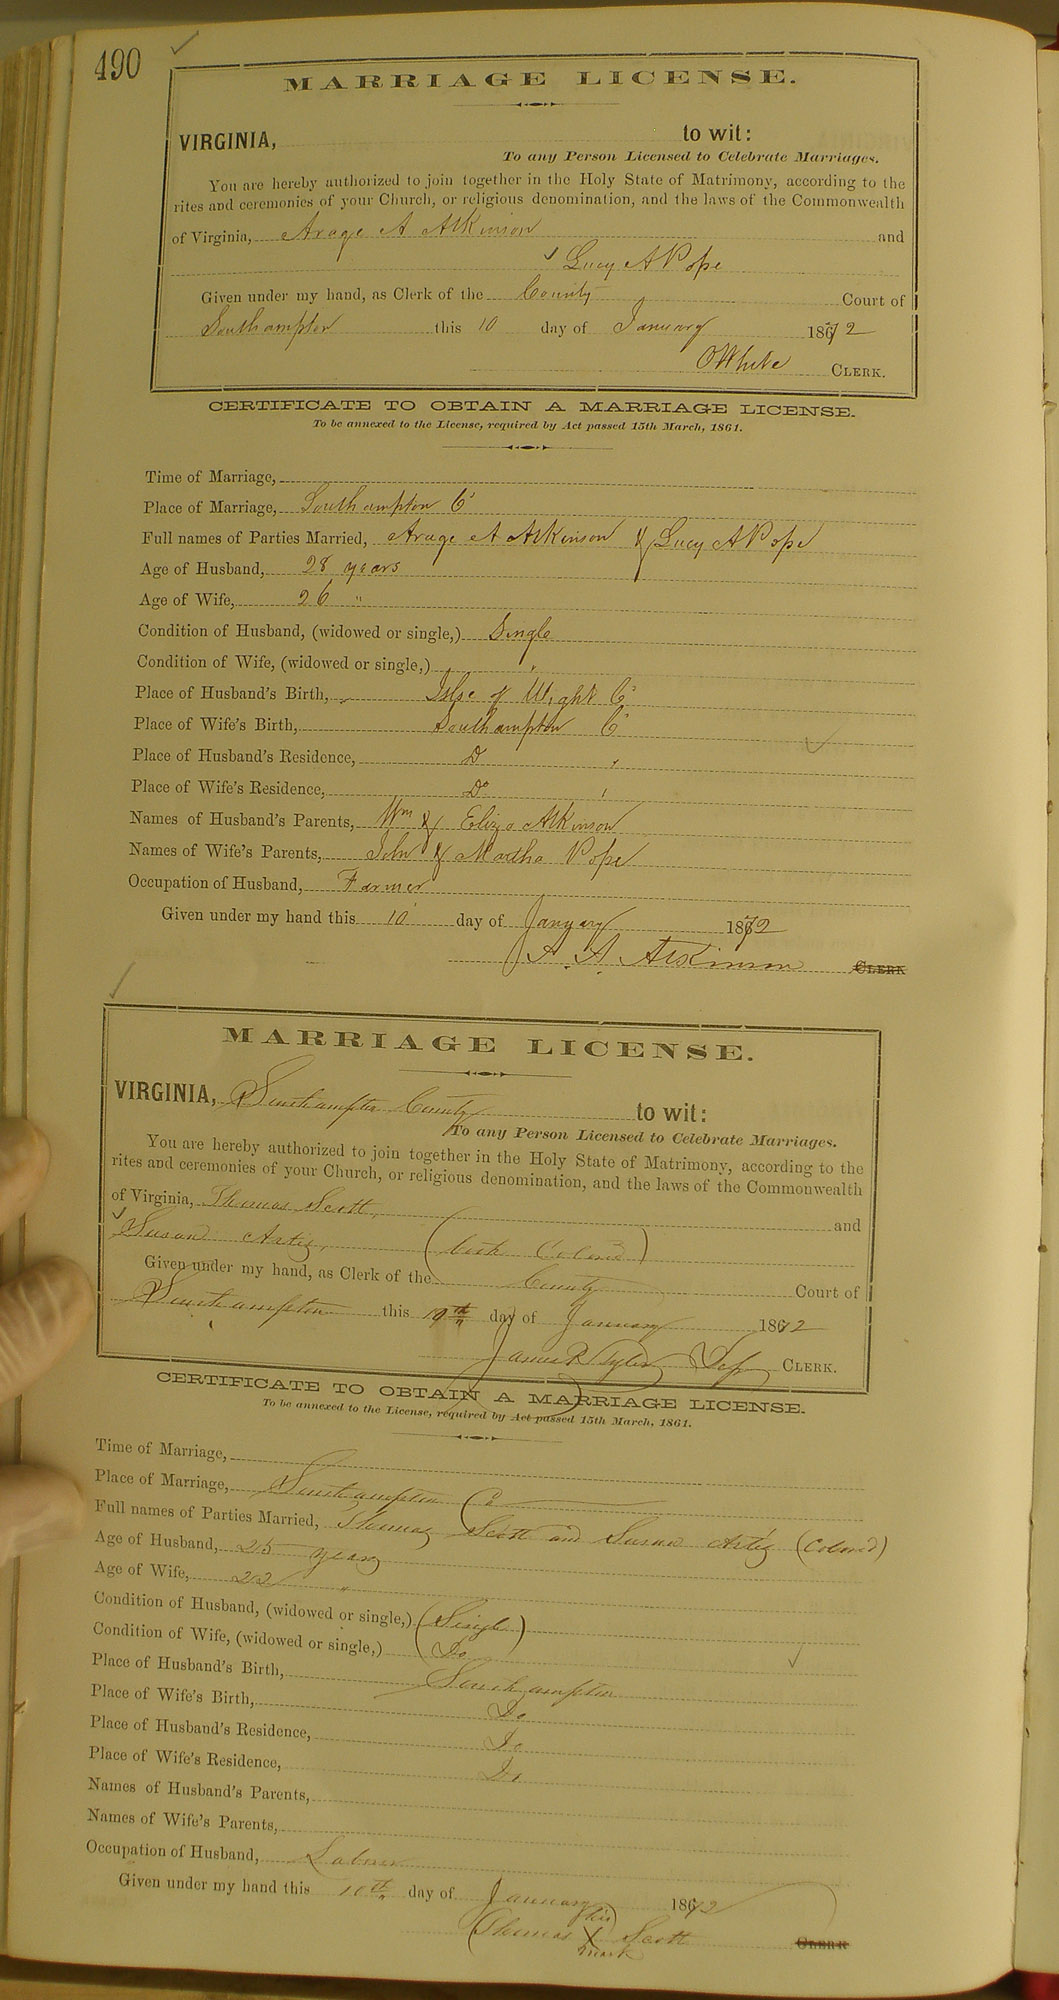 490
MARRIAGE LICENSE.
VIRGINIA, to wit:
To any Person Licensed to Celebrate Marriages.
You are hereby authorized to join together in the Holy State of Matrimony, according to the
rites and ceremonies of your Church, or religious denomination, and the laws of the Commonwealth
of Virginia, A Atkinson and
Lucy A Pope
Given under my hand, as Clerk of the County Court of
Southampton this 10 day of January 1872
White CLERK.
CERTIFICATE TO OBTAIN A MARRIAGE LICENSE.
To be annexed to the License, required by Act passed 15th March, 1861.
Time of Marriage,
Place of Marriage, Southampton Co
Full names of Parties Married, A Atkinson & Lucy A Pope
Age of Husband, 28 years
Age of Wife, 26 "
Condition of Husband, (widowed or single,) Single
Condition of Wife, (widowed or single,) "
Place of Husband's Birth, Isle of Wight Co
Place of Wife's Birth, Southampton Co
Place of Husband's Residence, Do "
Place of Wife's Residence, Do "
Names of Husband's Parents, Wm & Eliza Atkinson
Names of Wife's Parents, John & Martha Pope
Occupation of Husband, Farmer
Given under my hand this 10 day of January 1872
A. A. Atkinson CLERK
MARRIAGE LICENSE.
VIRGINIA, Southampton County to wit:
To any Person Licensed to Celebrate Marriages.
You are hereby authorized to join together in the Holy State of Matrimony, according to the
rites and ceremonies of your Church, or religious denomination, and the laws of the Commonwealth
of Virginia, Thomas Scott, and
Susan Artis, (both Colored)
Given under my hand, as Clerk of the County Court of
Southampton this 10th day of January 1872
James R Tyler Dep CLERK.
CERTIFICATE TO OBTAIN A MARRIAGE LICENSE.
To be annexed to the License, required by Act passed 15th March, 1861.
Time of Marriage,
Place of Marriage, Southampton Co
Full names of Parties Married, Thomas Scott and Susan Artis (Colored)
Age of Husband, 25 years
Age of Wife, 22 "
Condition of Husband, (widowed or single,) (Single)
Condition of Wife, (widowed or single,) (Do
Place of Husband's Birth, Southampton
Place of Wife's Birth, Do
Place of Husband's Residence, Do
Place of Wife's Residence, Do
Names of Husband's Parents,
Names of Wife's Parents,
Occupation of Husband, Laborer
Given under my hand this 10th day of January 1872
(his)
Thomas X Scott CLERK
mark